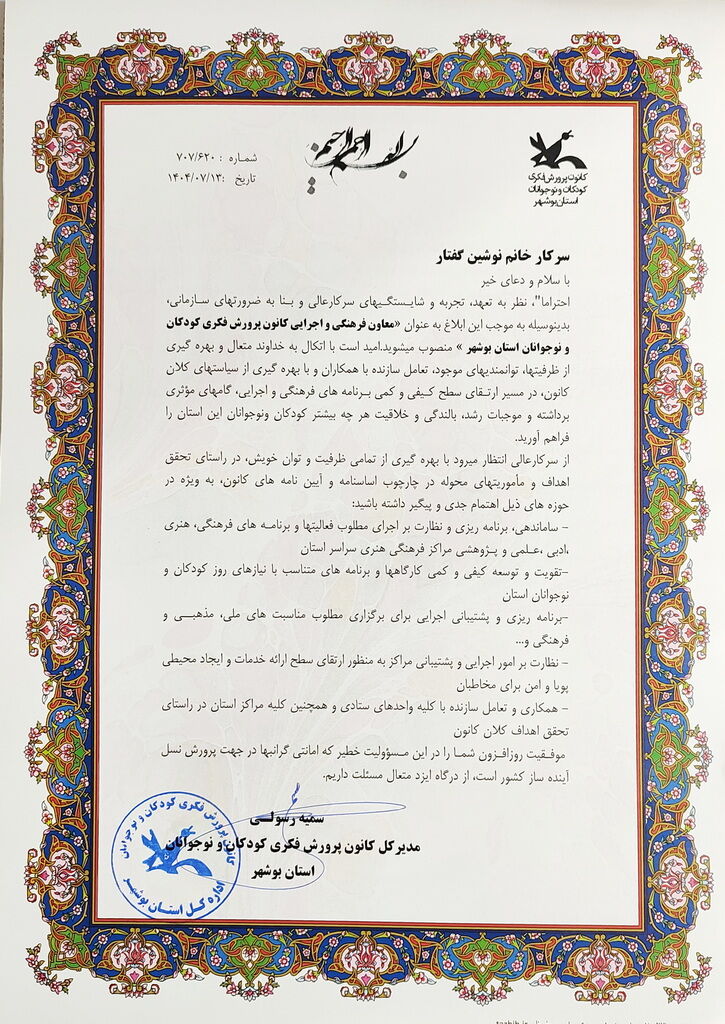 بسم الله الرحمن الرحیم
شماره : ۷۰۷/۶۲۰
تاریخ :۱۴۰۴/۰۷/۱۳
کانون پرورش فکری
کودکان و نوجوانان
استان بوشهر
سرکار خانم نوشین گفتار
با سلام و دعای خیر
احتراما"، نظر به تعهد، تجربه و شایستگیهای سرکارعالی و بنا به ضرورتهای سازمانی،
بدینوسیله به موجب این ابلاغ به عنوان «معاون فرهنگی و اجرایی کانون پرورش فکری کودکان
و نوجوانان استان بوشهر » منصوب میشوید.امید است با اتکال به خداوند متعال و بهره گیری
از ظرفیتها، توانمندیهای موجود، تعامل سازنده با همکاران و با بهره گیری از سیاستهای کلان
کانون، در مسیر ارتقای سطح کیفی و کمی برنامه های فرهنگی و اجرایی، گامهای مؤثری
برداشته و موجبات رشد، بالندگی و خلاقیت هر چه بیشتر کودکان ونوجوانان این استان را
فراهم آورید.
از سرکارعالی انتظار میرود با بهره گیری از تمامی ظرفیت و توان خویش، در راستای تحقق
اهداف و مأموریتهای محوله در چارچوب اساسنامه و آیین نامه های کانون، به ویژه در
حوزه های ذیل اهتمام جدی و پیگیر داشته باشید:
- ساماندهی، برنامه ریزی و نظارت بر اجرای مطلوب فعالیتها و برنامه های فرهنگی، هنری
،ادبی ،علمی و پژوهشی مراکز فرهنگی هنری سراسر استان
-تقویت و توسعه کیفی و کمی کارگاهها و برنامه های متناسب با نیازهای روز کودکان و
نوجوانان استان
-برنامه ریزی و پشتیبانی اجرایی برای برگزاری مطلوب مناسبت های ملی، مذهبی و
فرهنگی و...
- نظارت بر امور اجرایی و پشتیبانی مراکز به منظور ارتقای سطح ارائه خدمات و ایجاد محیطی
پویا و امن برای مخاطبان
- همکاری و تعامل سازنده با کلیه واحدهای ستادی و همچنین کلیه مراکز استان در راستای
تحقق اهداف کلان کانون
موفقیت روزافزون شما را در این مسؤولیت خطیر که امانتی گرانبها در جهت پرورش نسل
آینده ساز کشور است، از درگاه ایزد متعال مسئلت داریم.
سمیه رسولی
مدیرکل کانون پرورش فکری کودکان و نوجوانان
استان بوشهر
کانون پرورش فکری کودکان و نوجوانان
اداره کل استان بوشهر